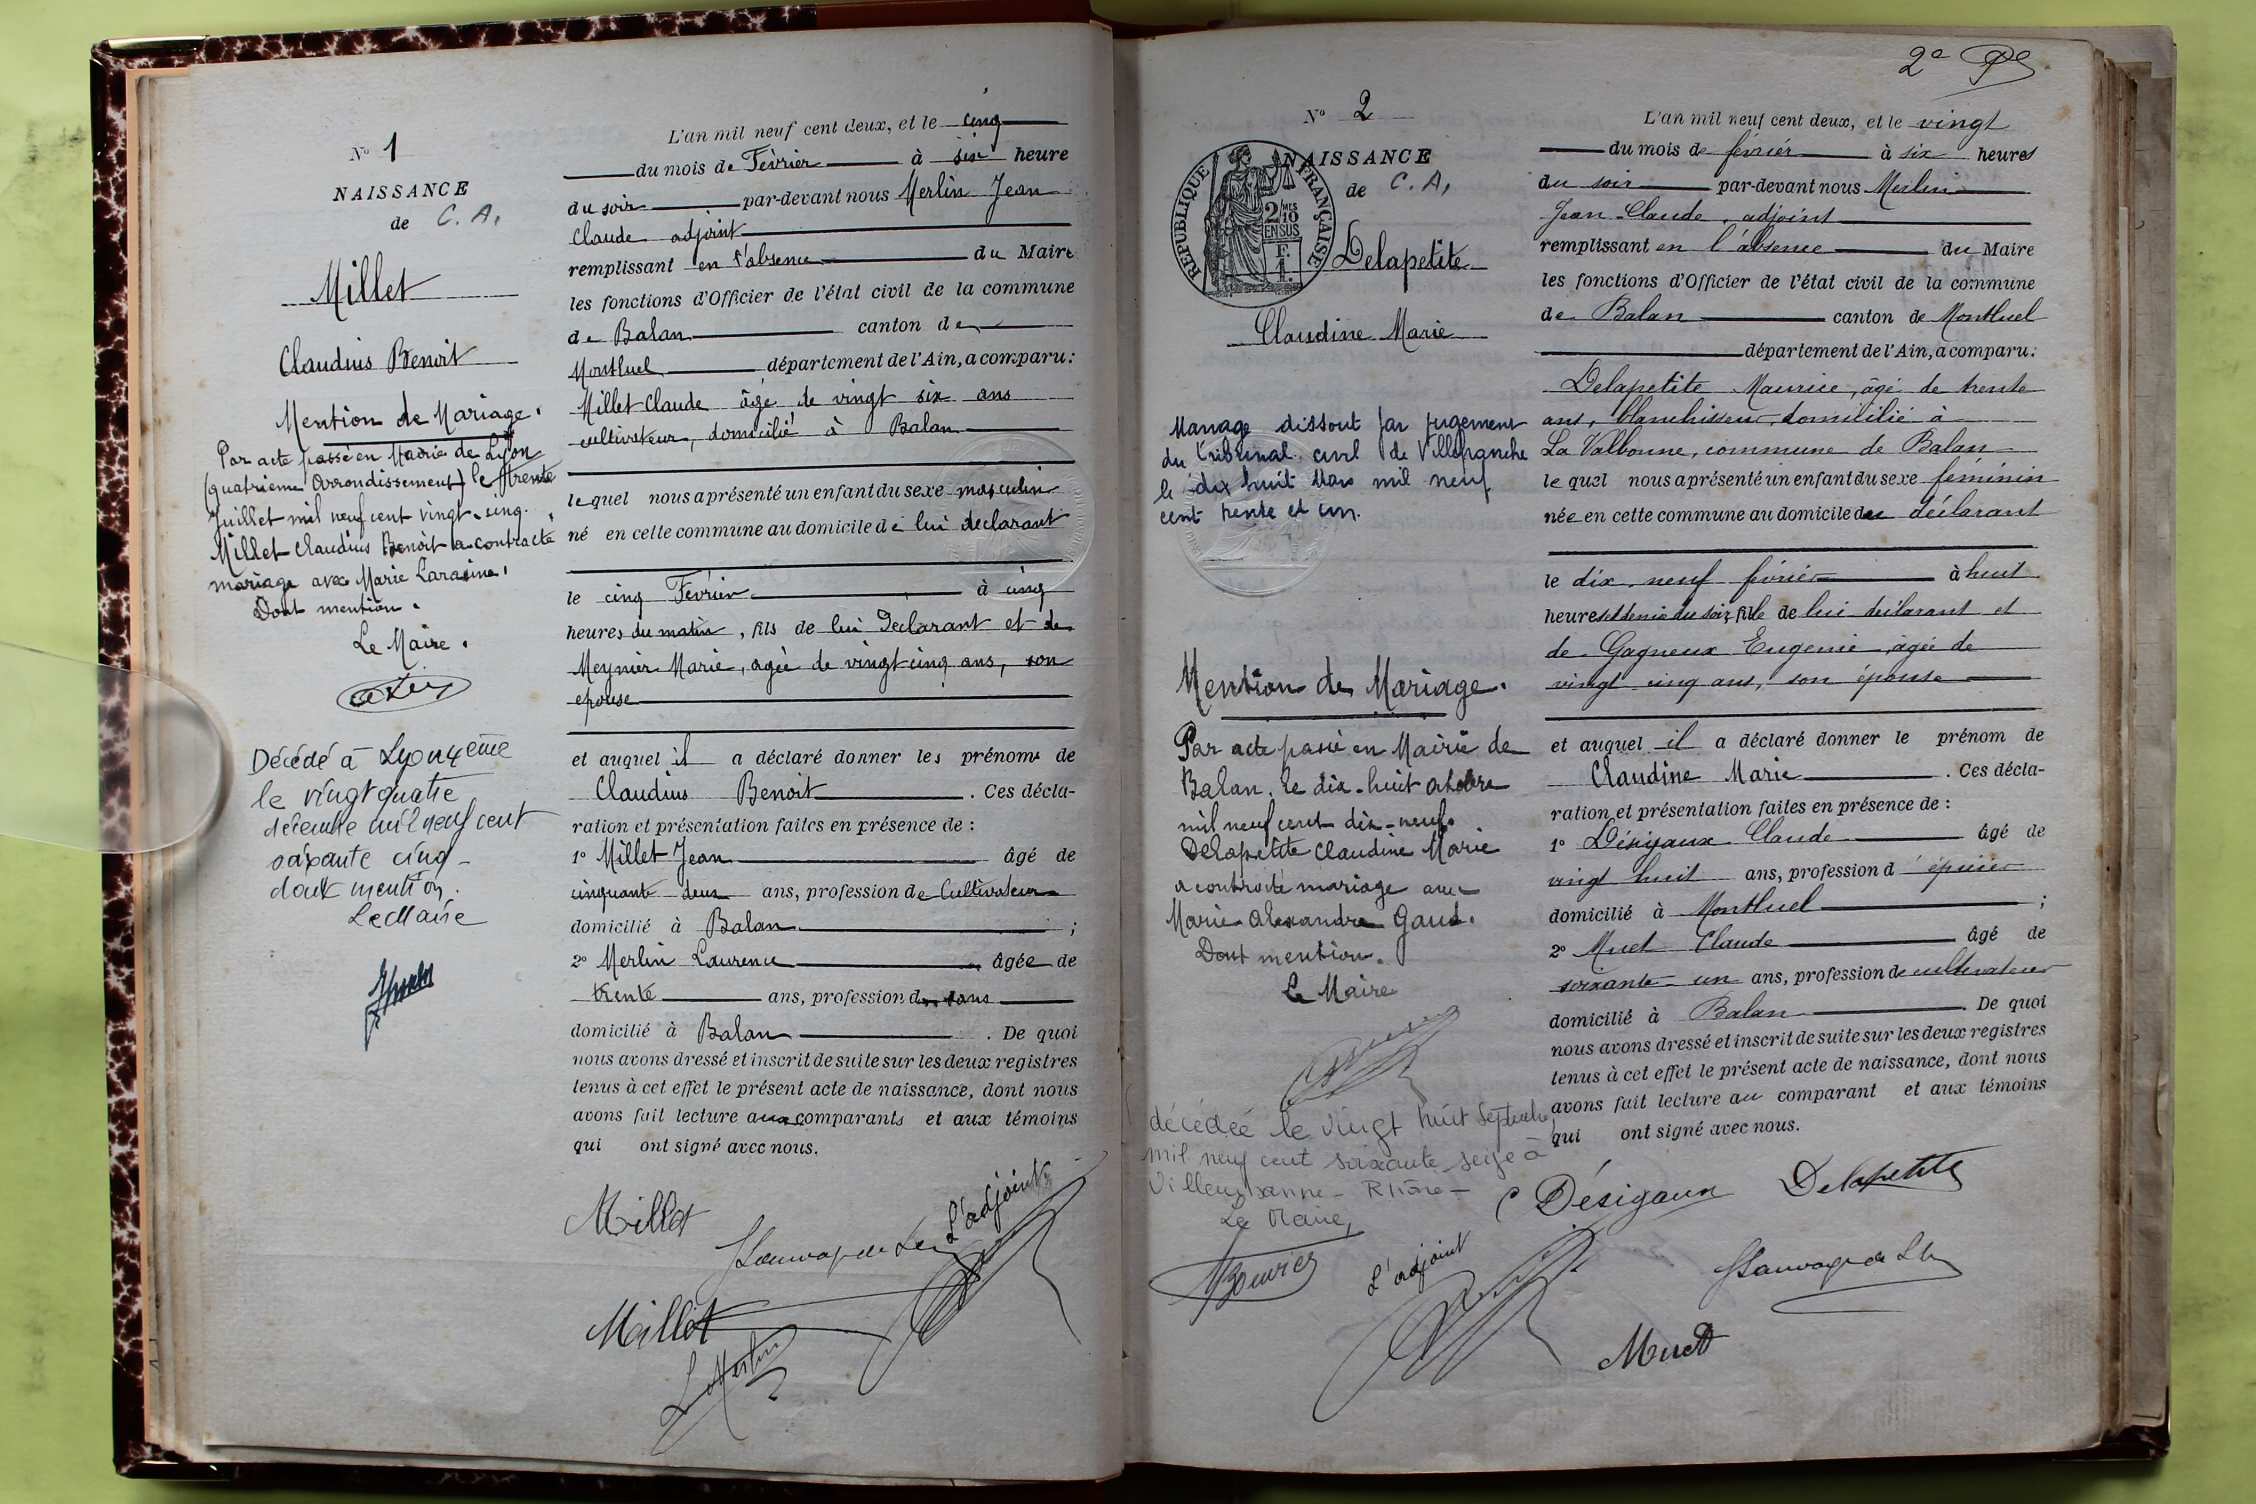 N° 1
NAISSANCE
de C. A.
Millet
Claudius Benoit
Mention de Mariage.
Par acte passé en Mairie de Lyon
(quatrième Arrondissement) le trente
Juillet mil neuf cent vingt-cinq.
Millet Claudius Benoit a contracté
mariage avec Marie
Dont mention.
Le Maire.
Décédé à Lyon 4eme
le vingt quatre
décembre mil neuf cent
soixante cinq
dont mention.
Le Maire
L'an mil neuf cent deux, et le cinq
du mois de Février à six heure
du soir par-devant nous Merlin Jean
Claude adjoint
remplissant en l'absence du Maire
les fonctions d'Officier de l'état civil de la commune
de Balan canton de
Montluel département de l'Ain, a comparu:
Millet Claude âgé de vingt six ans
cultivateur, domicilié à Balan
lequel nous a présenté un enfant du sexe masculin
né en cette commune au domicile de lui declarant
le cinq Février à cinq
heures du matin, fils de lui Declarant et de
Meynier Marie, agée de vingt-cinq ans, son
epouse
et auquel il a déclaré donner les prénoms de
Claudius Benoit. Ces décla-
ration et présentation faites en présence de :
1° Millet Jean âgé de
cinquante deux ans, profession de Cultivateur
domicilié à Balan ;
2° Merlin Laurence âgée de
trente ans, profession de sans
domicilié à Balan. De quoi
nous avons dressé et inscrit de suite sur les deux registres
tenus à cet effet le présent acte de naissance, dont nous
avons fait lecture aux comparants et aux témoins
qui ont signé avec nous.
Millet
L'adjoint
Millet
L. Merlin
2e
N° 2
NAISSANCE
de C. A.
RÉPUBLIQUE FRANÇAISE
2/10 MES
EN SUS
F.
1.
Delapetite
Claudine Marie
Mariage dissout par jugement
du Tribunal civil de Villefranche
le dix huit Mars mil neuf
cent trente et un.
Mention de Mariage.
Par acte passé en Mairie de
Balan, le dix-huit octobre
mil neuf cent dix-neuf.
Delapetite Claudine Marie
a contracté mariage avec
Marie Alexandre Gaud.
Dont mention.
Le Maire
décédée le vingt huit Septembre
mil neuf cent soixante seize à
Villeurbanne - Rhône -
Le Maire,
Bouvier
L'an mil neuf cent deux, et le vingt
du mois de février à six heures
du soir par-devant nous Merlin
Jean-Claude, adjoint
remplissant en l'absence du Maire
les fonctions d'Officier de l'état civil de la commune
de Balan canton de Montluel
département de l'Ain, a comparu:
Delapetite Maurice, âgé de trente
ans, blanchisseur, domicilié à
La Valbonne, commune de Balan
lequel nous a présenté un enfant du sexe féminin
née en cette commune au domicile du déclarant
le dix-neuf février à huit
heures et demie du soir, fille de lui déclarant et
de Gagneux Eugenie, agée de
vingt cinq ans, son épouse
et auquel il a déclaré donner le prénom de
Claudine Marie. Ces décla-
ration et présentation faites en présence de :
1° Désigaux Claude âgé de
vingt huit ans, profession d'épicier
domicilié à Montluel ;
2° Muet Claude âgé de
soixante-un ans, profession de cultivateur
domicilié à Balan. De quoi
nous avons dressé et inscrit de suite sur les deux registres
tenus à cet effet le présent acte de naissance, dont nous
avons fait lecture au comparant et aux témoins
qui ont signé avec nous.
C Désigaux Delapetite
L'adjoint
Muet